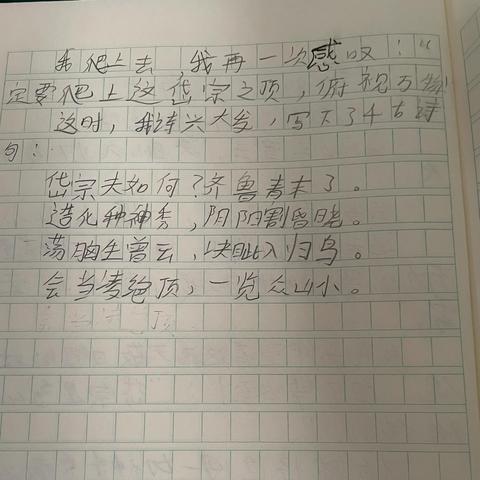 我爬上去 我再一次感叹：“
定要爬上这岱宗之顶，俯视万物
这时，我诗兴大发，写下了4句诗
句：
岱宗夫如何？齐鲁青未了。
造化种神秀，阴阳割昏晓。
荡胸生曾云，决眦入归鸟。
会当凌绝顶，一览众山小。